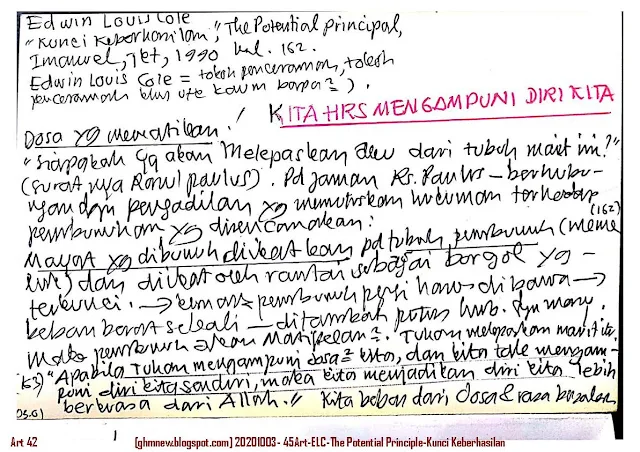 Edwin Louis Cole
"Kunci Keberhasilan," The Potential principal,
Imanuel, Jkt, 1990 hal. 162.
Edwin Louis Cole = tokoh penceramah, tokoh
penceramah khus utk kaum bapa2).
KITA HRS MENGAMPUNI DIRI KITA
Dosa yg mematikan!
"Siapakah yg akan Melepaskan aku dari tubuh maut ini?"
(surat nya Rasul paulus). Pd jaman Rs. Paulus – berhubu-
ngan dgn pengadilan yg memutuskan hukuman terhadap
pembunuhan yg direncanakan:
(162)
Mayat yg dibunuh diikatkan pd tubuh pembunuh (meme
luk) dan diikat oleh rantai sebagai borgol yg
terkunci. → kemana2 pembunuh pergi harus dibawa →
beban berat sekali – ditambah putus hub. dgn
Maka pembunuh akan Mati Tuhan melepaskan maut itu.
163) "Apabila Tuhan mengampuni dosa2 kita, dan kita tdk mengam-
puni diri kita sendiri, maka kita menjadikan diri kita lebih
berkuasa dari Allah." Kita bebas dari dosa & rasa bersalah
Art 42
1
[ghmnew.blogspot.com] 20201003- 45Art-ELC-The Potential Principle-Kunci Keberhasilan